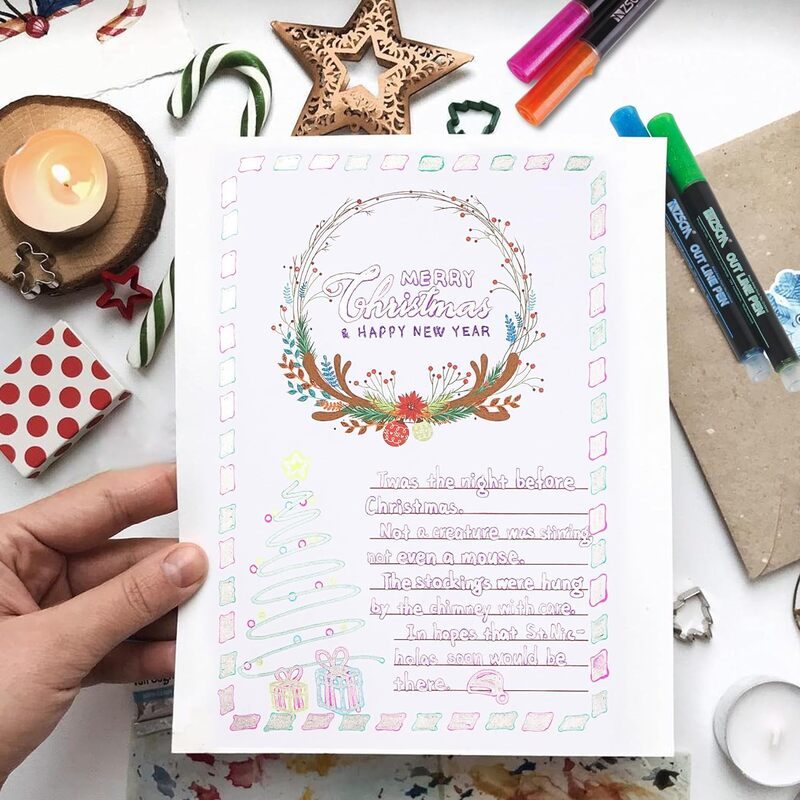 MERRY
Christmas
& HAPPY NEW YEAR
Twas the night before
Christmas.
Not a creature was stirring
not even a mouse.
The stockings were hung
by the chimney with care.
In hopes that St. Nic-
holas soon would be
there.
OUT LINE PEN
OUT LINE PEN